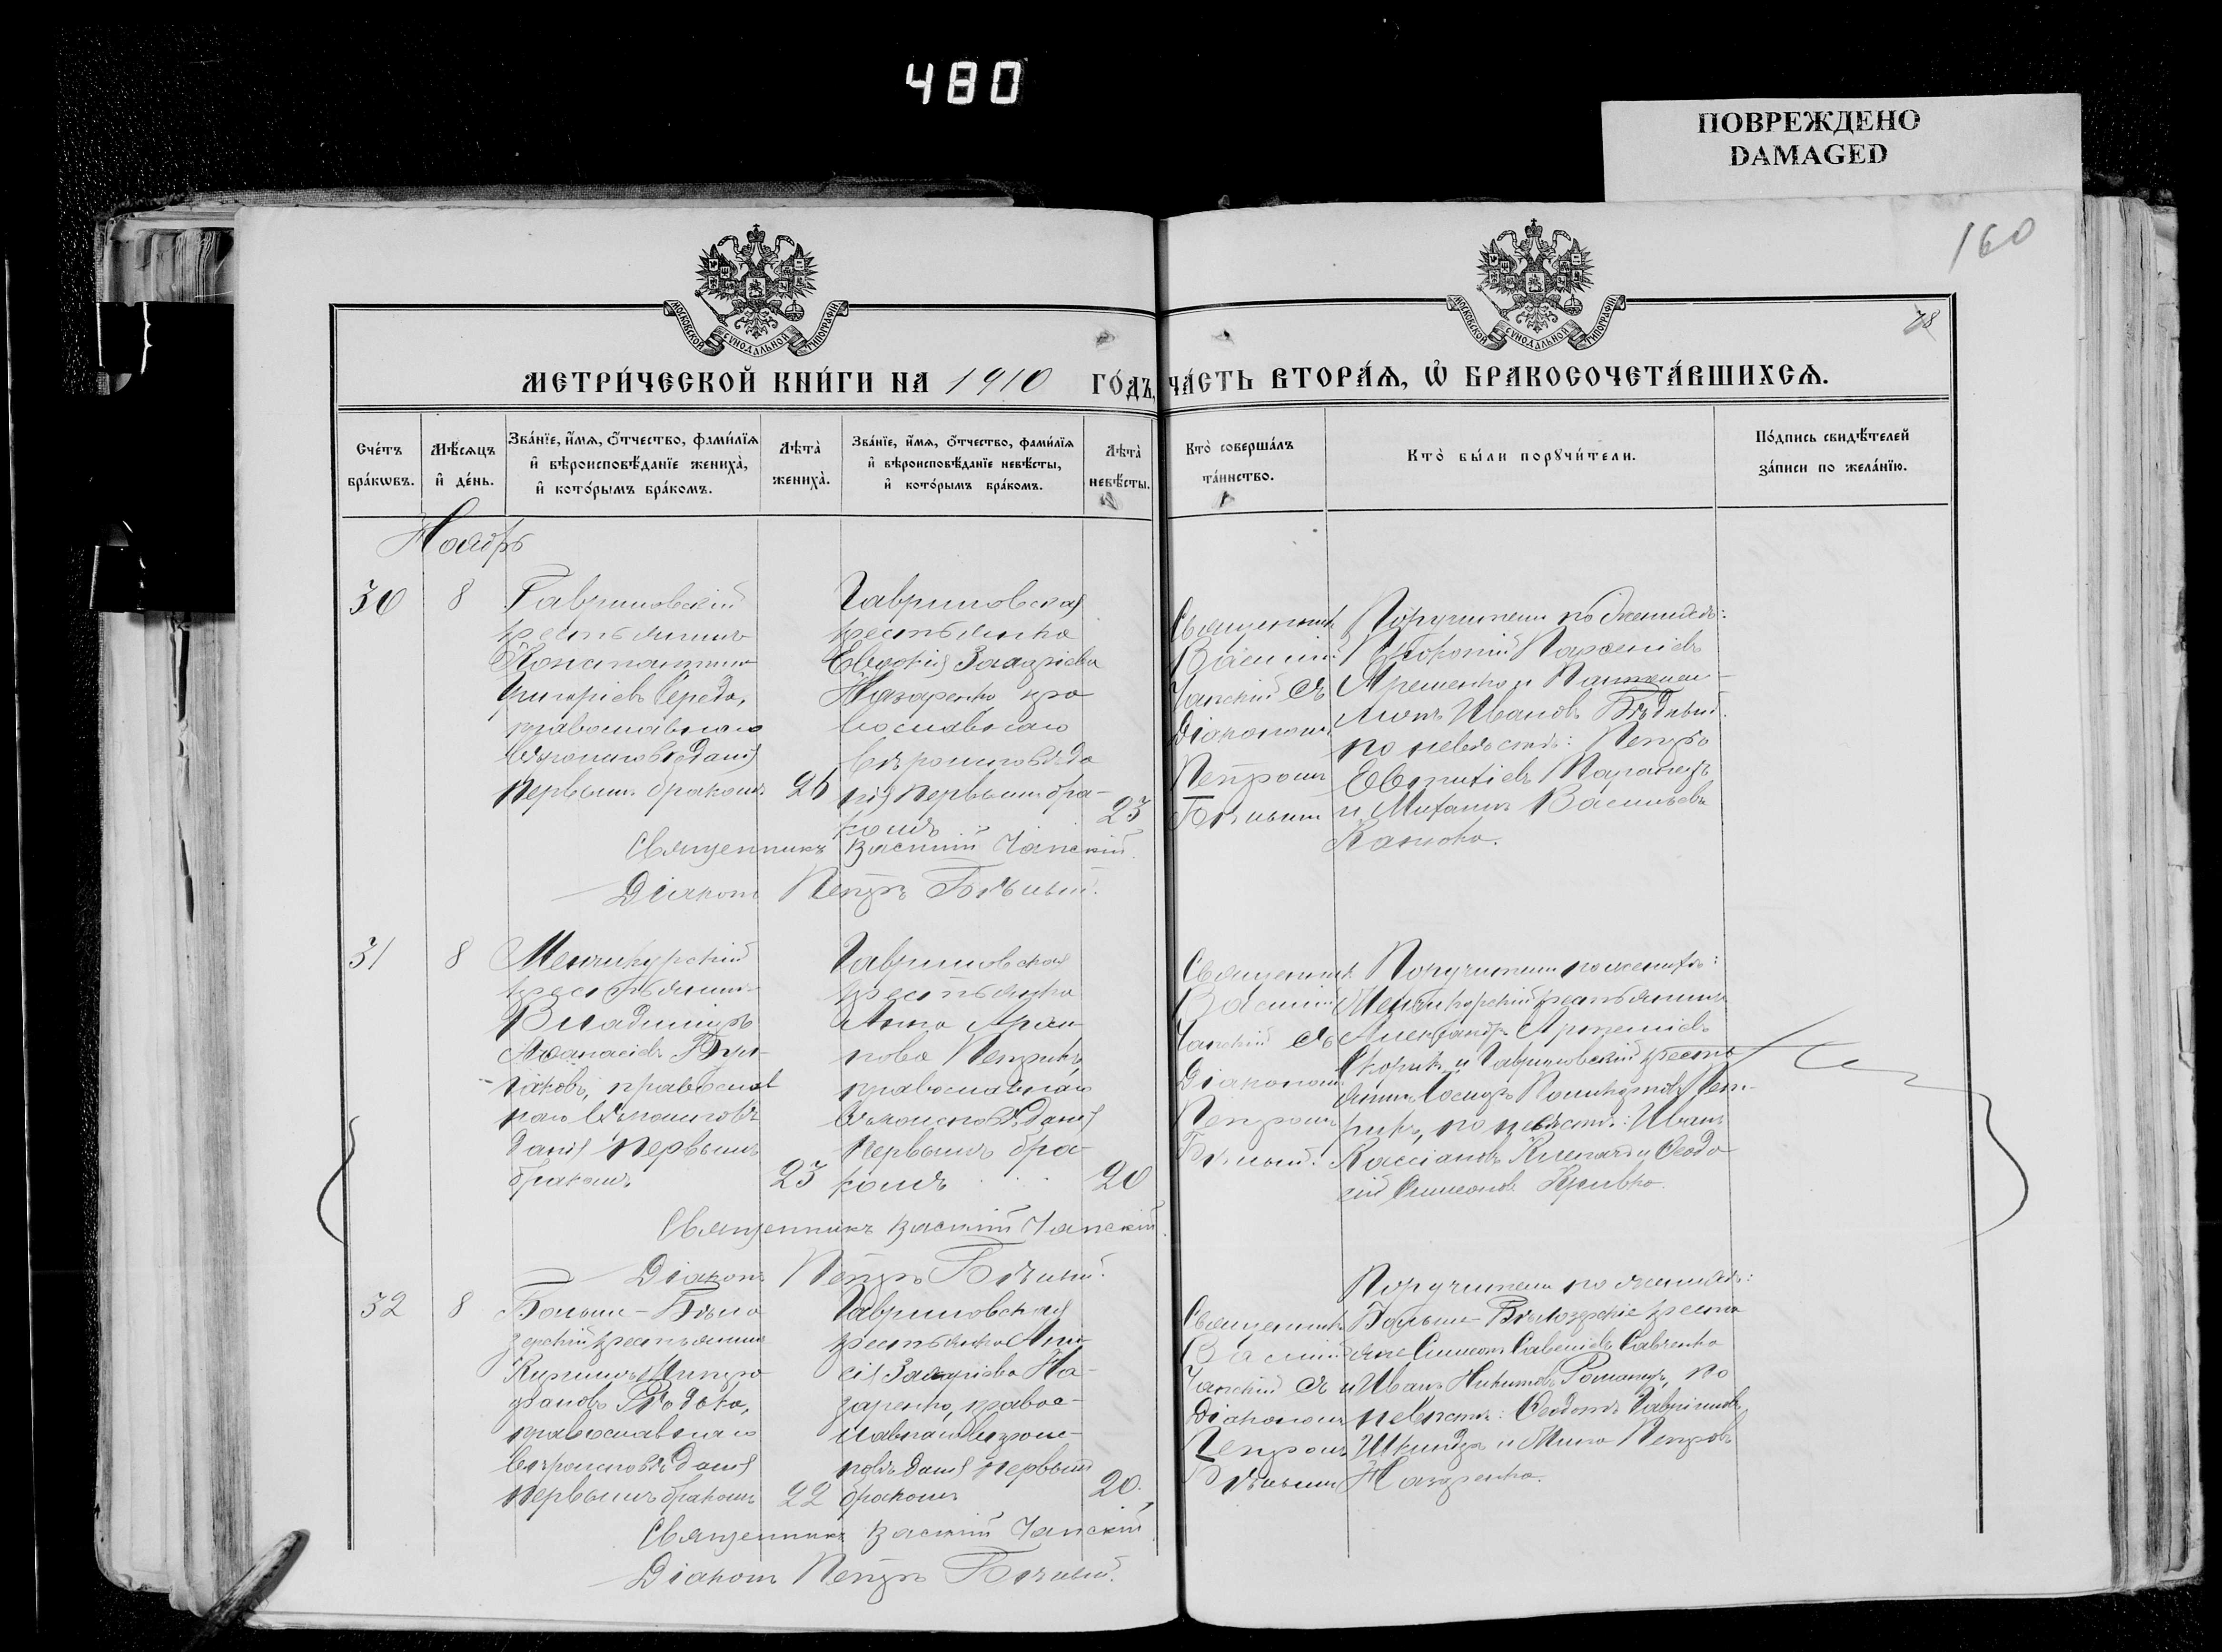 480
ПОВРЕЖДЕНО
DAMAGED
160
78
МОСКОВСКОЙ СУНОДАЛЬНОЙ ТИПОГРАФІИ
МОСКОВСКОЙ СУНОДАЛЬНОЙ ТИПОГРАФІИ
МЕТРИ́ЧЕСКОЙ КНИ́ГИ НА 1910 ГО́ДЪ, ЧА́СТЬ ВТОРА́Ѧ, Ѽ БРАКОСОЧЕТА́ВШИХСѦ.
Сче́тъ бра́кωвъ.
Мѣ́сѧцъ и҆ де́нь.
Зва́нїе, и҆́мѧ, ѻ҆́тчество, фами́лїѧ и҆ вѣроисповѣ́данїе жениха̀, и҆ кото́рымъ бра́комъ.
Лѣта̀ жениха̀.
Зва́нїе, и҆́мѧ, ѻ҆́тчество, фами́лїѧ и҆ вѣроисповѣ́данїе невѣ́сты, и҆ кото́рымъ бра́комъ.
Лѣта̀ невѣ́сты.
Кто̀ соверша́лъ та́инство.
Кто̀ бы́ли порꙋчи́тели.
По́дпись свидѣ́телей за́писи по жела́нїю.
Ноябрь
30
8
Гавриловскій
крестьянинъ
Константинъ
Григоріевъ Середа,
православнаго
вѣроисповѣданія
первымъ бракомъ.
26
Гавриловская
крестьянка
Евдокія Захаріева
Назаренко пра
вославнаго
вѣроисповѣда
нія первымъ бра-
комъ
23
Священникъ
Василій
Чапскій съ
Діакономъ
Петромъ
Бѣлымъ
Поручители по женихѣ:
Парѳеніевъ
Ивановъ Бѣдный.
по невѣстѣ: Петръ
и Михаилъ Васильевъ
Священникъ Василій Чапскій.
Діаконъ Петръ Бѣлый.
31
8
крестьянинъ
Владиміръ
Аѳанасіевъ
православ
наго вѣроисповѣ
данія первымъ
бракомъ.
23
Гавриловская
крестьянка
Анна
Петрикъ,
православнаго
вѣроисповѣданія
первымъ бра-
комъ
20
Священникъ
Василій
Чапскій съ
Діакономъ
Петромъ
Бѣлый.
Поручители по женихѣ:
крестьянинъ
Александръ Артеміевъ
Скорикъ и Гавриловскій кресть
янинъ Іосифъ Поликарповъ Пет-
рикъ, по невѣстѣ: Иванъ
Кассіановъ
Симеоновъ Кривко.
Священникъ Василій Чапскій.
Діаконъ Петръ Бѣлый.
32
8
Больше-Бѣло
зерскій крестьянинъ
Кириллъ Митро
фановъ
православнаго
вѣроисповѣданія
первымъ бракомъ
22
Гавриловская
крестьянка
Захаріева На-
заренко, правос-
лавнаго вѣроис-
повѣданія первымъ
бракомъ
20.
Священникъ
Василій
Чапскій съ
Діакономъ
Петромъ
Бѣлымъ
Поручители по женихѣ:
Больше-Бѣлозерскіе кресть
яне Симеонъ Савченко
и Иванъ Никитовъ по
невѣстѣ: Гавріиловъ
и Петровъ
Назаренко.
Священникъ Василій Чапскій
Діаконъ Петръ Бѣлый.